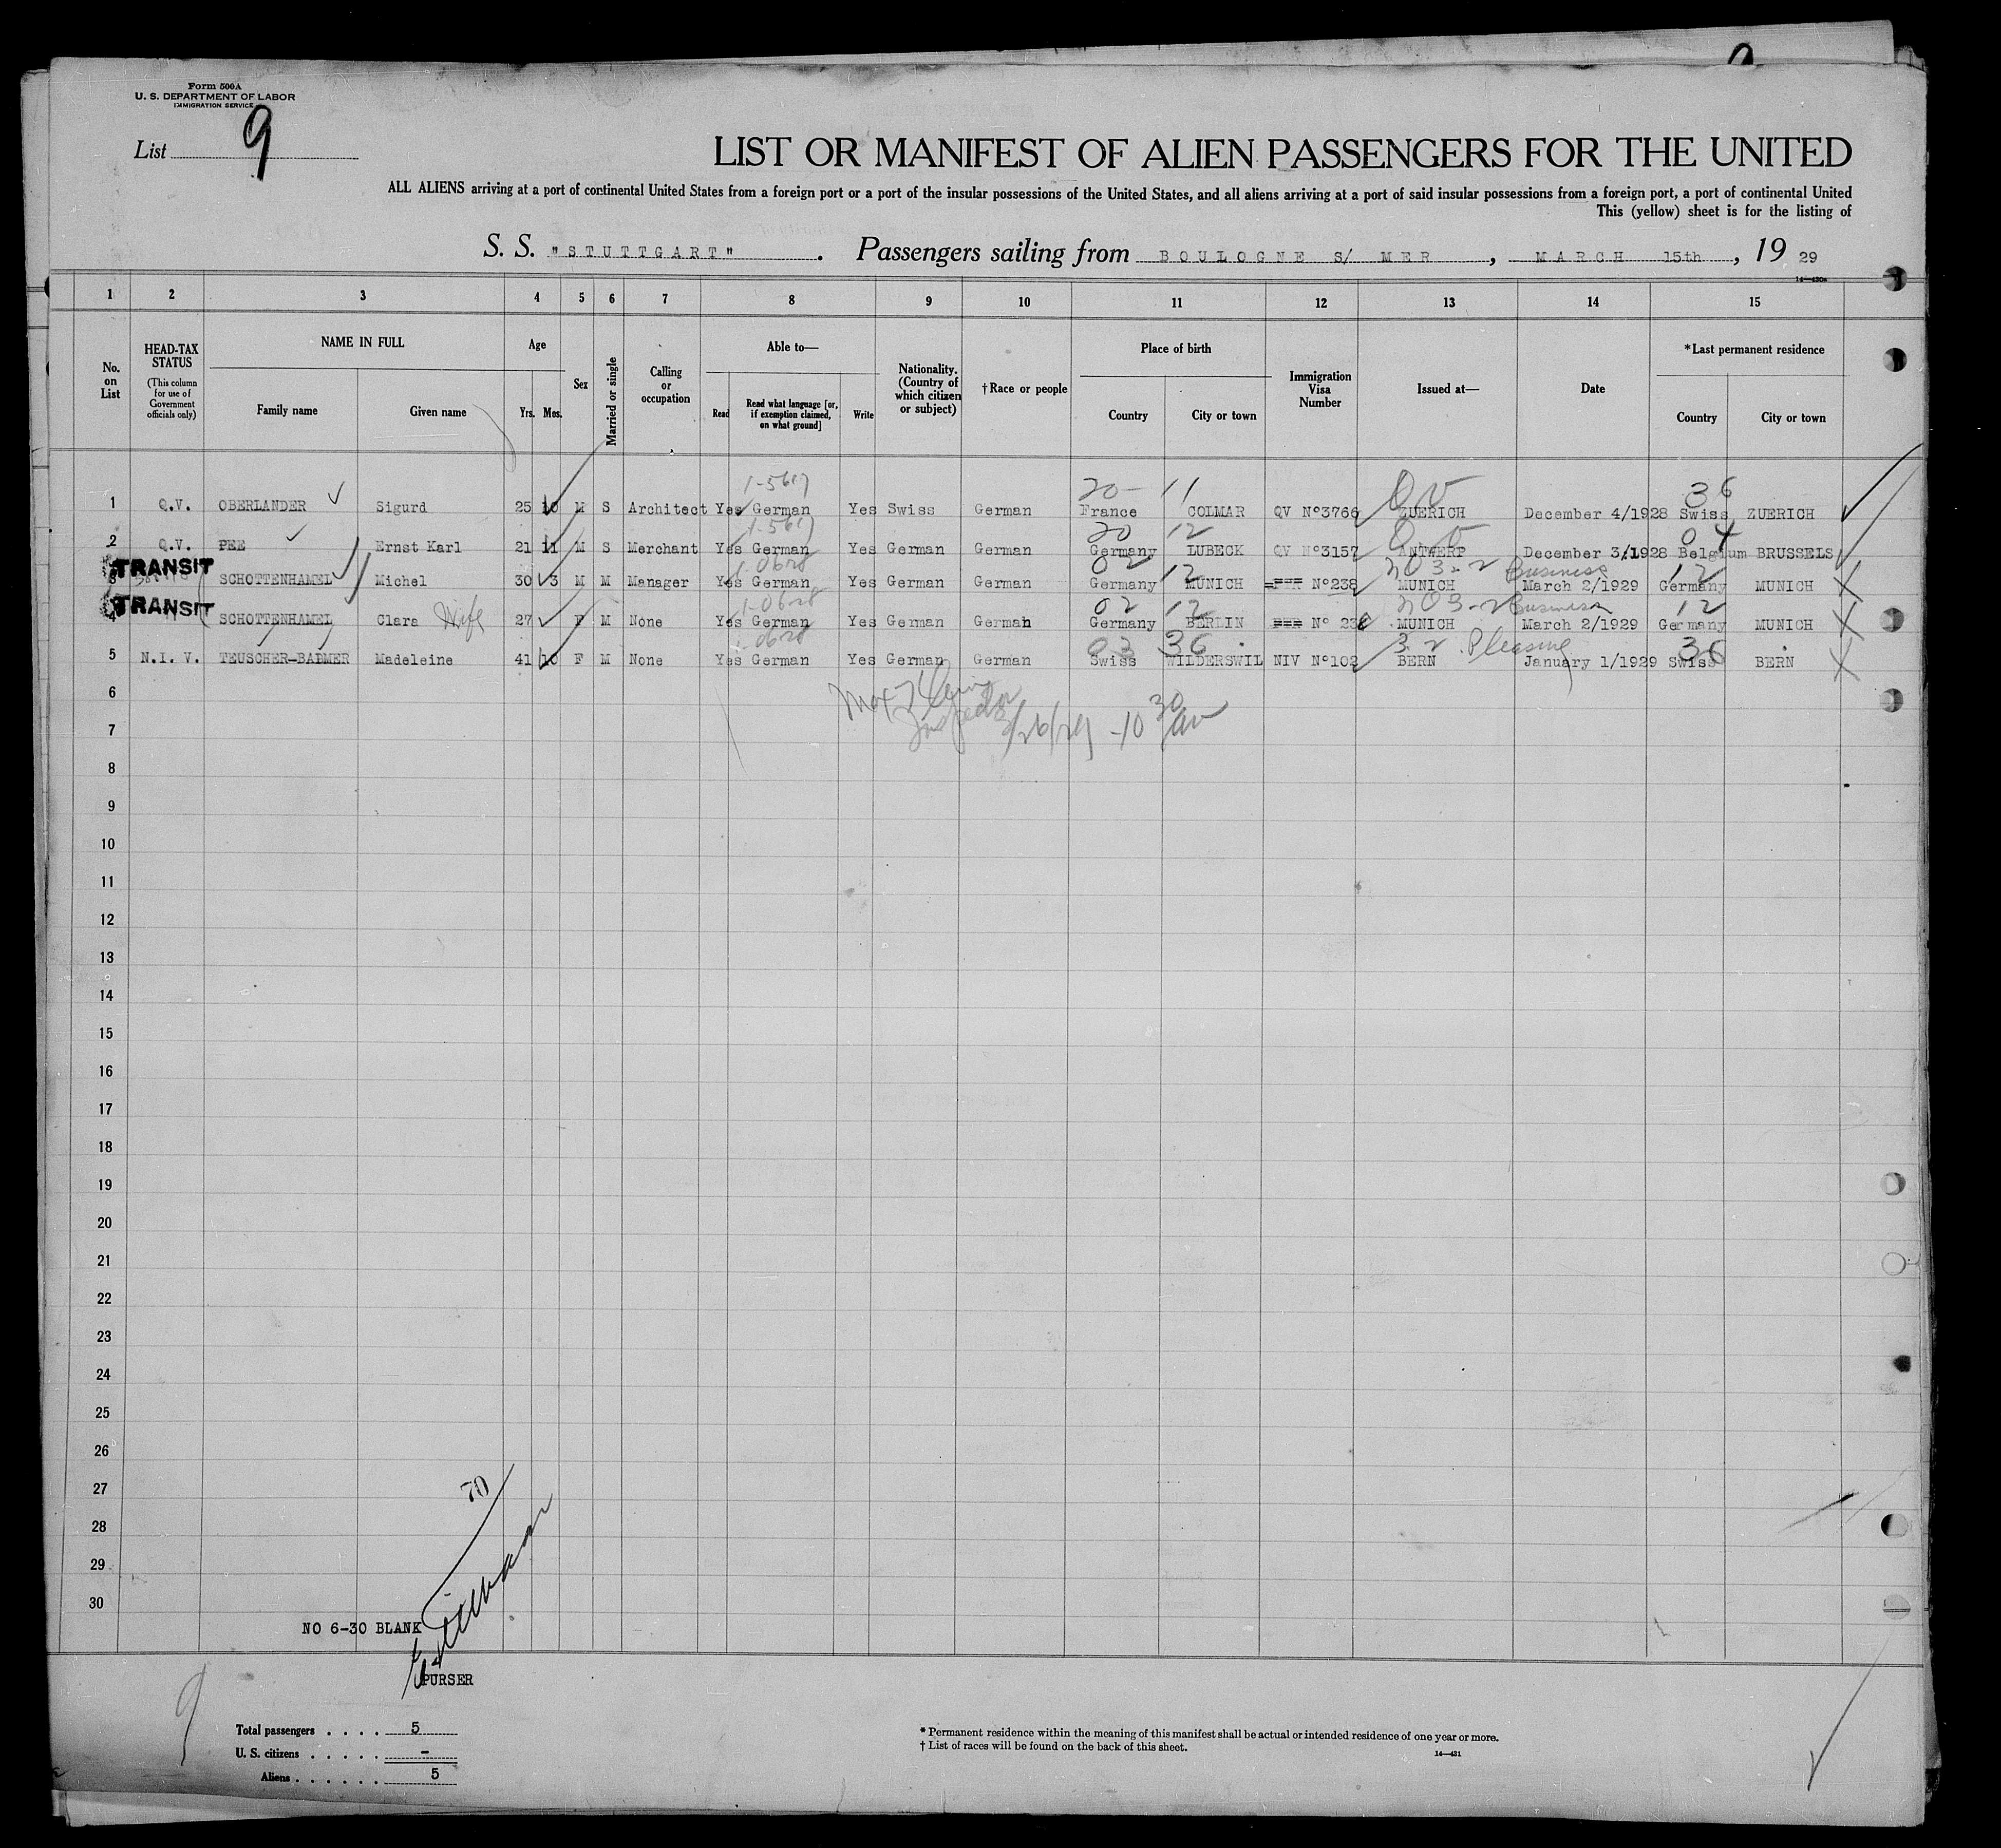 Form 500A
U. S. DEPARTMENT OF LABOR
IMMIGRATION SERVICE
List 9
LIST OR MANIFEST OF ALIEN PASSENGERS FOR THE UNITED
ALL ALIENS arriving at a port of continental United States from a foreign port or a port of the insular possessions of the United States, and all aliens arriving at a port of said insular possessions from a foreign port, a port of continental United
This (yellow) sheet is for the listing of
S. S. "STUTTGART" . Passengers sailing from BOULOGNE S/ MER , MARCH 15th , 19 29
14—430a
1 2 3 4 5 6 7 8 9 10 11 12 13 14 15
No. on List
HEAD-TAX STATUS
(This column for use of Government officials only)
NAME IN FULL
Family name
Given name
Age
Yrs. Mos.
Sex
Married or single
Calling or occupation
Able to—
Read
Read what language [or, if exemption claimed, on what ground]
Write
Nationality. (Country of which citizen or subject)
†Race or people
Place of birth
Country
City or town
Immigration Visa Number
Issued at—
Date
*Last permanent residence
Country
City or town
1-5617 20- 11 QV 36
1 Q.V. OBERLANDER Sigurd 25 10 M S Architect Yes German Yes Swiss German France COLMAR QV No3766 ZUERICH December 4/1928 Swiss ZUERICH
1-5617 20 12 04
2 Q.V. PEE Ernst Karl 21 11 M S Merchant Yes German Yes German German Germany LUBECK QV No3157 ANTWERP December 3/1928 Belgium BRUSSELS
TRANSIT 1-0628 02 12 Business 12
3 SCHOTTENHAMEL Michel 30 3 M M Manager Yes German Yes German German Germany MUNICH No238 MUNICH March 2/1929 Germany MUNICH
TRANSIT 1-0628 02 12 Business 12
4 SCHOTTENHAMEL Clara Wife 27 F M None Yes German Yes German German Germany BERLIN No MUNICH March 2/1929 Germany MUNICH
0628 03 36 3-2 Pleasure 36
5 N.I.V. TEUSCHER-BADMER Madeleine 41 10 F M None Yes German Yes German German Swiss WILDERSWIL NIV No102 BERN January 1/1929 Swiss BERN
6
Inspector 3/26/29 - 10 30 am
7
8
9
10
11
12
13
14
15
16
17
18
19
20
21
22
23
24
25
26
27
70
28
29
30
NO 6-30 BLANK
PURSER
9
Total passengers . . . . 5
U. S. citizens . . . . . -
Aliens . . . . . . 5
* Permanent residence within the meaning of this manifest shall be actual or intended residence of one year or more.
† List of races will be found on the back of this sheet.
14—431